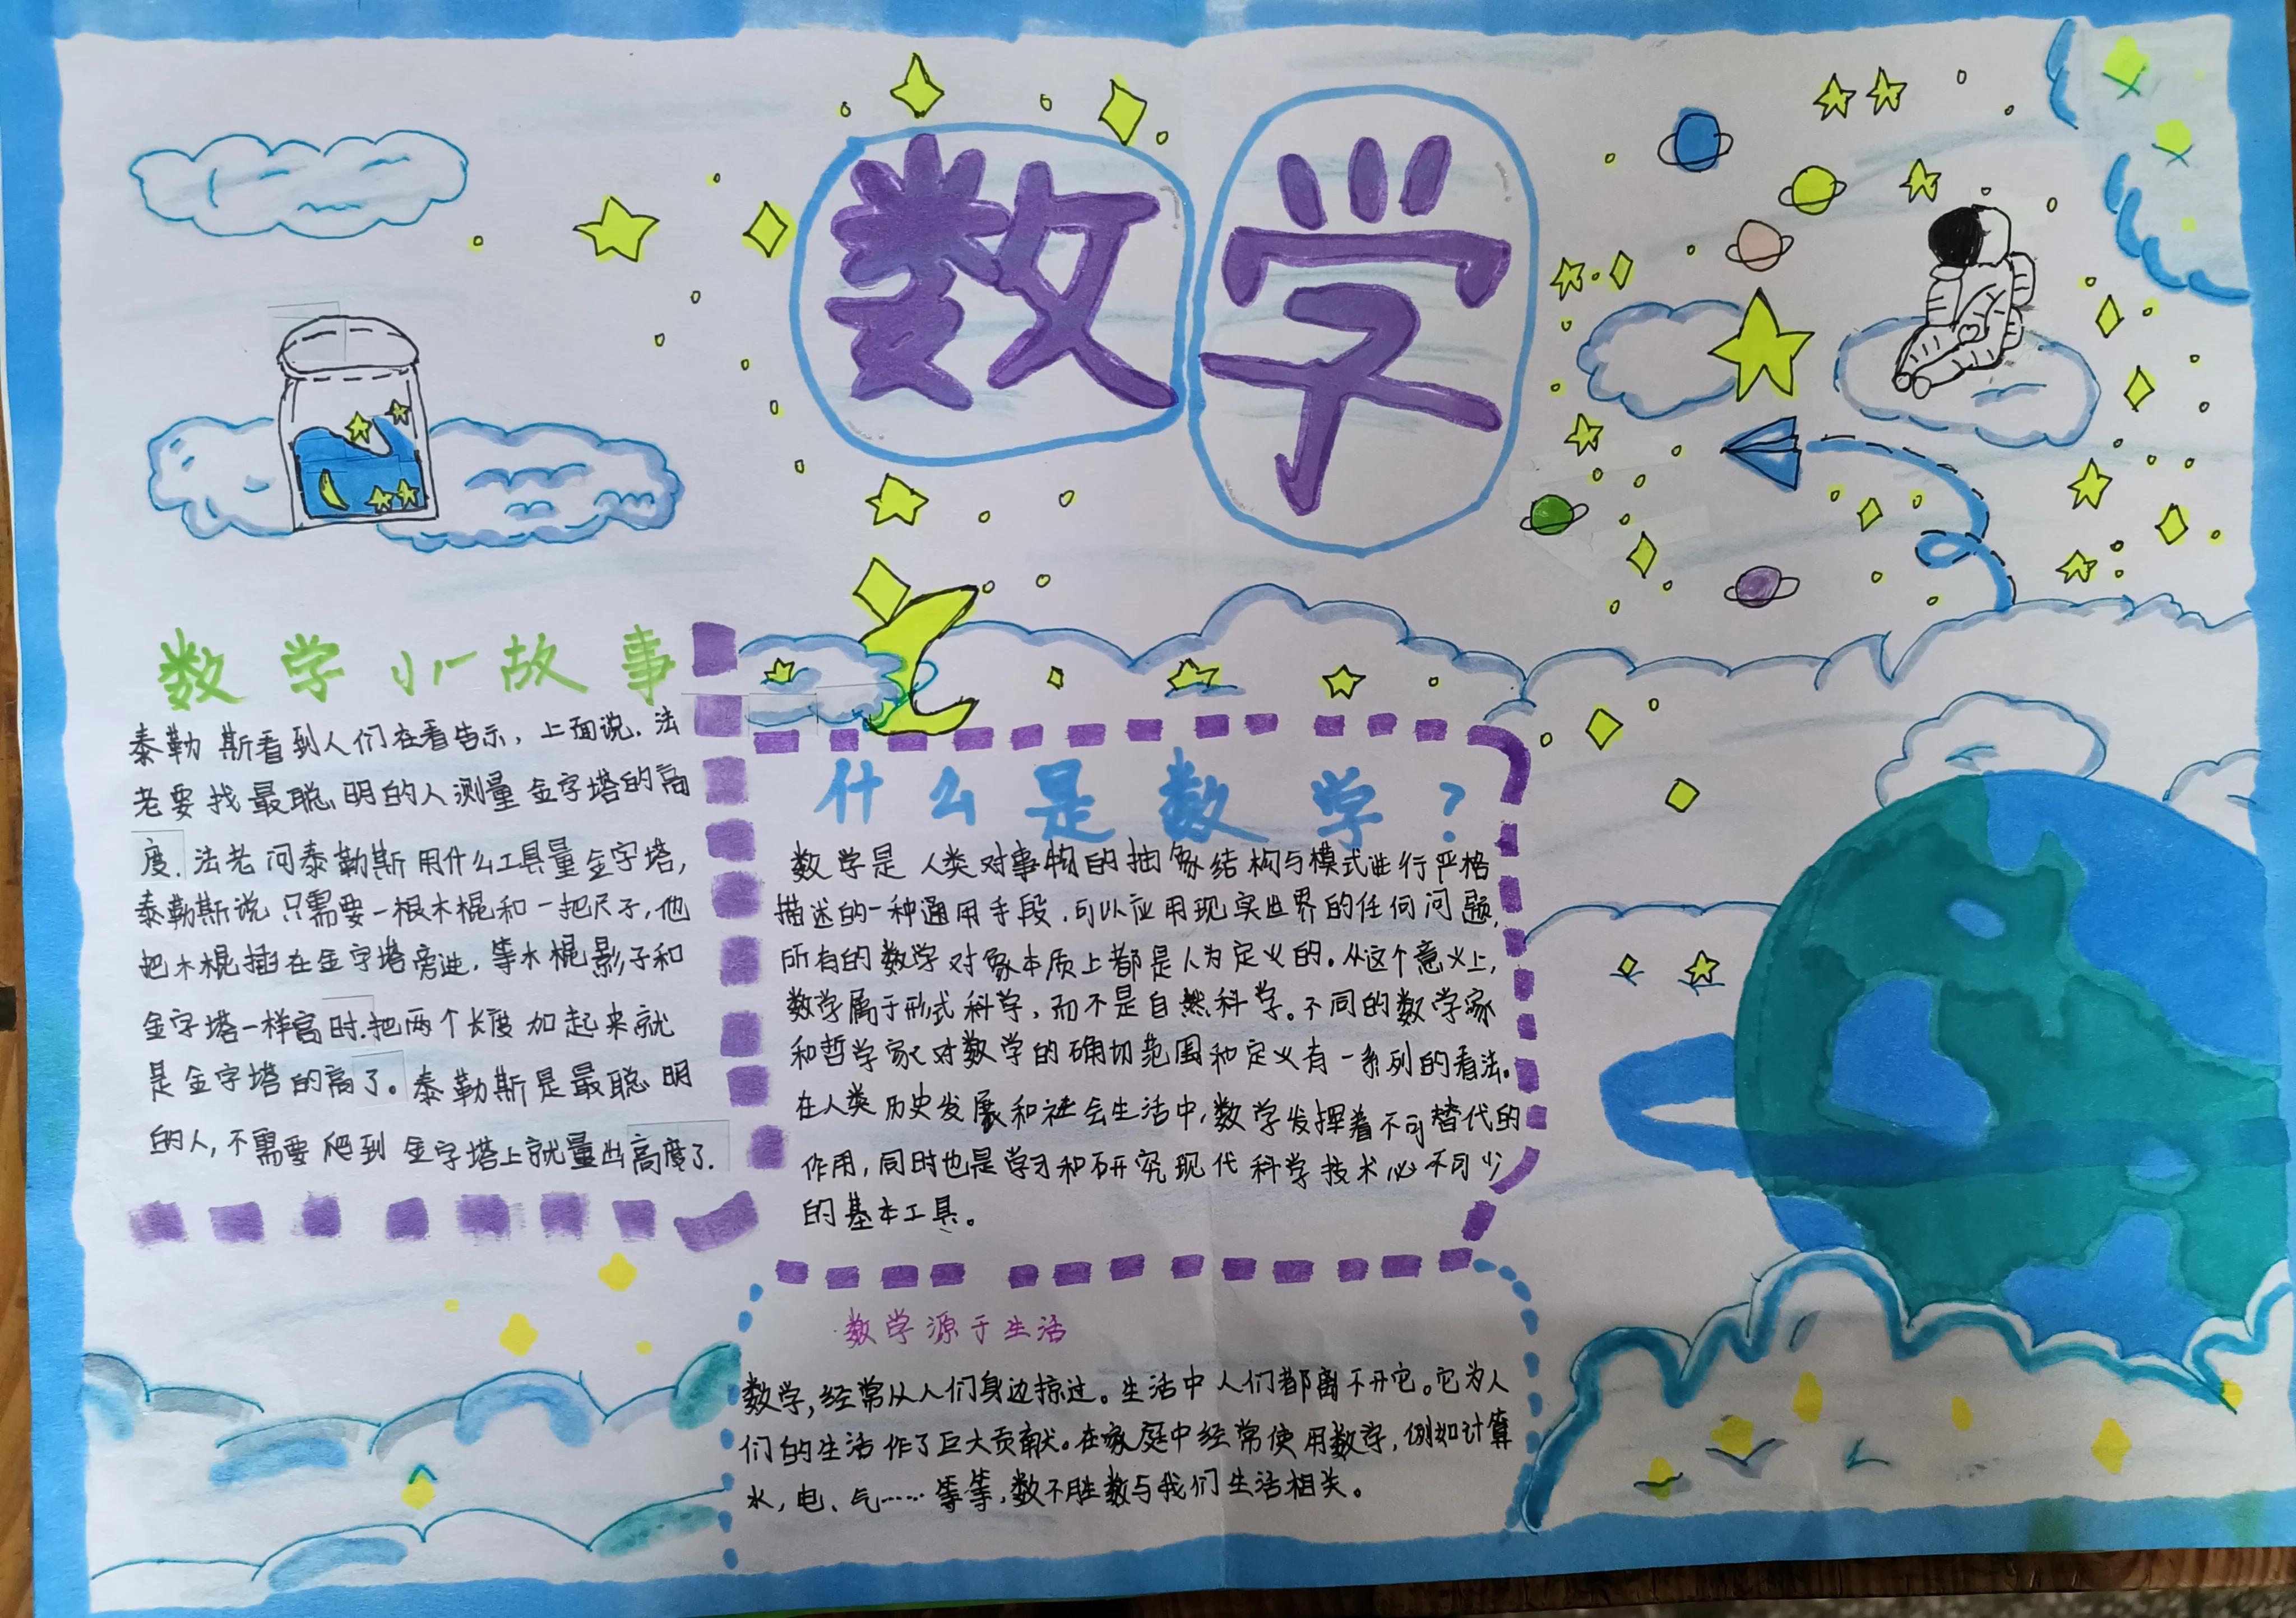 数学
数学小故事
泰勒斯看到人们在看告示，上面说，法
老要找最聪明的人测量金字塔的高
度，法老问泰勒斯用什么工具量金字塔，
泰勒斯说只需要一根木棍和一把尺子，他
把木棍插在金字塔旁边，等木棍影子和
金字塔一样高时，把两个长度加起来就
是金字塔的高了。泰勒斯是最聪明
的人，不需要爬到金字塔上就量出高度了.
什么是数学？
数学是人类对事物的抽象结构与模式进行严格
描述的一种通用手段，可以应用现实世界的任何问题，
所有的数学对象本质上都是人为定义的。从这个意义上，
数学属于形式科学，而不是自然科学。不同的数学家
和哲学家对数学的确切范围和定义有一系列的看法。
在人类历史发展和社会生活中，数学发挥着不可替代的
作用，同时也是学习和研究现代科学技术必不可少
的基本工具。
数学源于生活
数学，经常从人们身边掠过。生活中人们都离不开它。它为人
们的生活作了巨大贡献。在家庭中经常使用数学，例如计算
水，电、气……等等，数不胜数与我们生活相关。